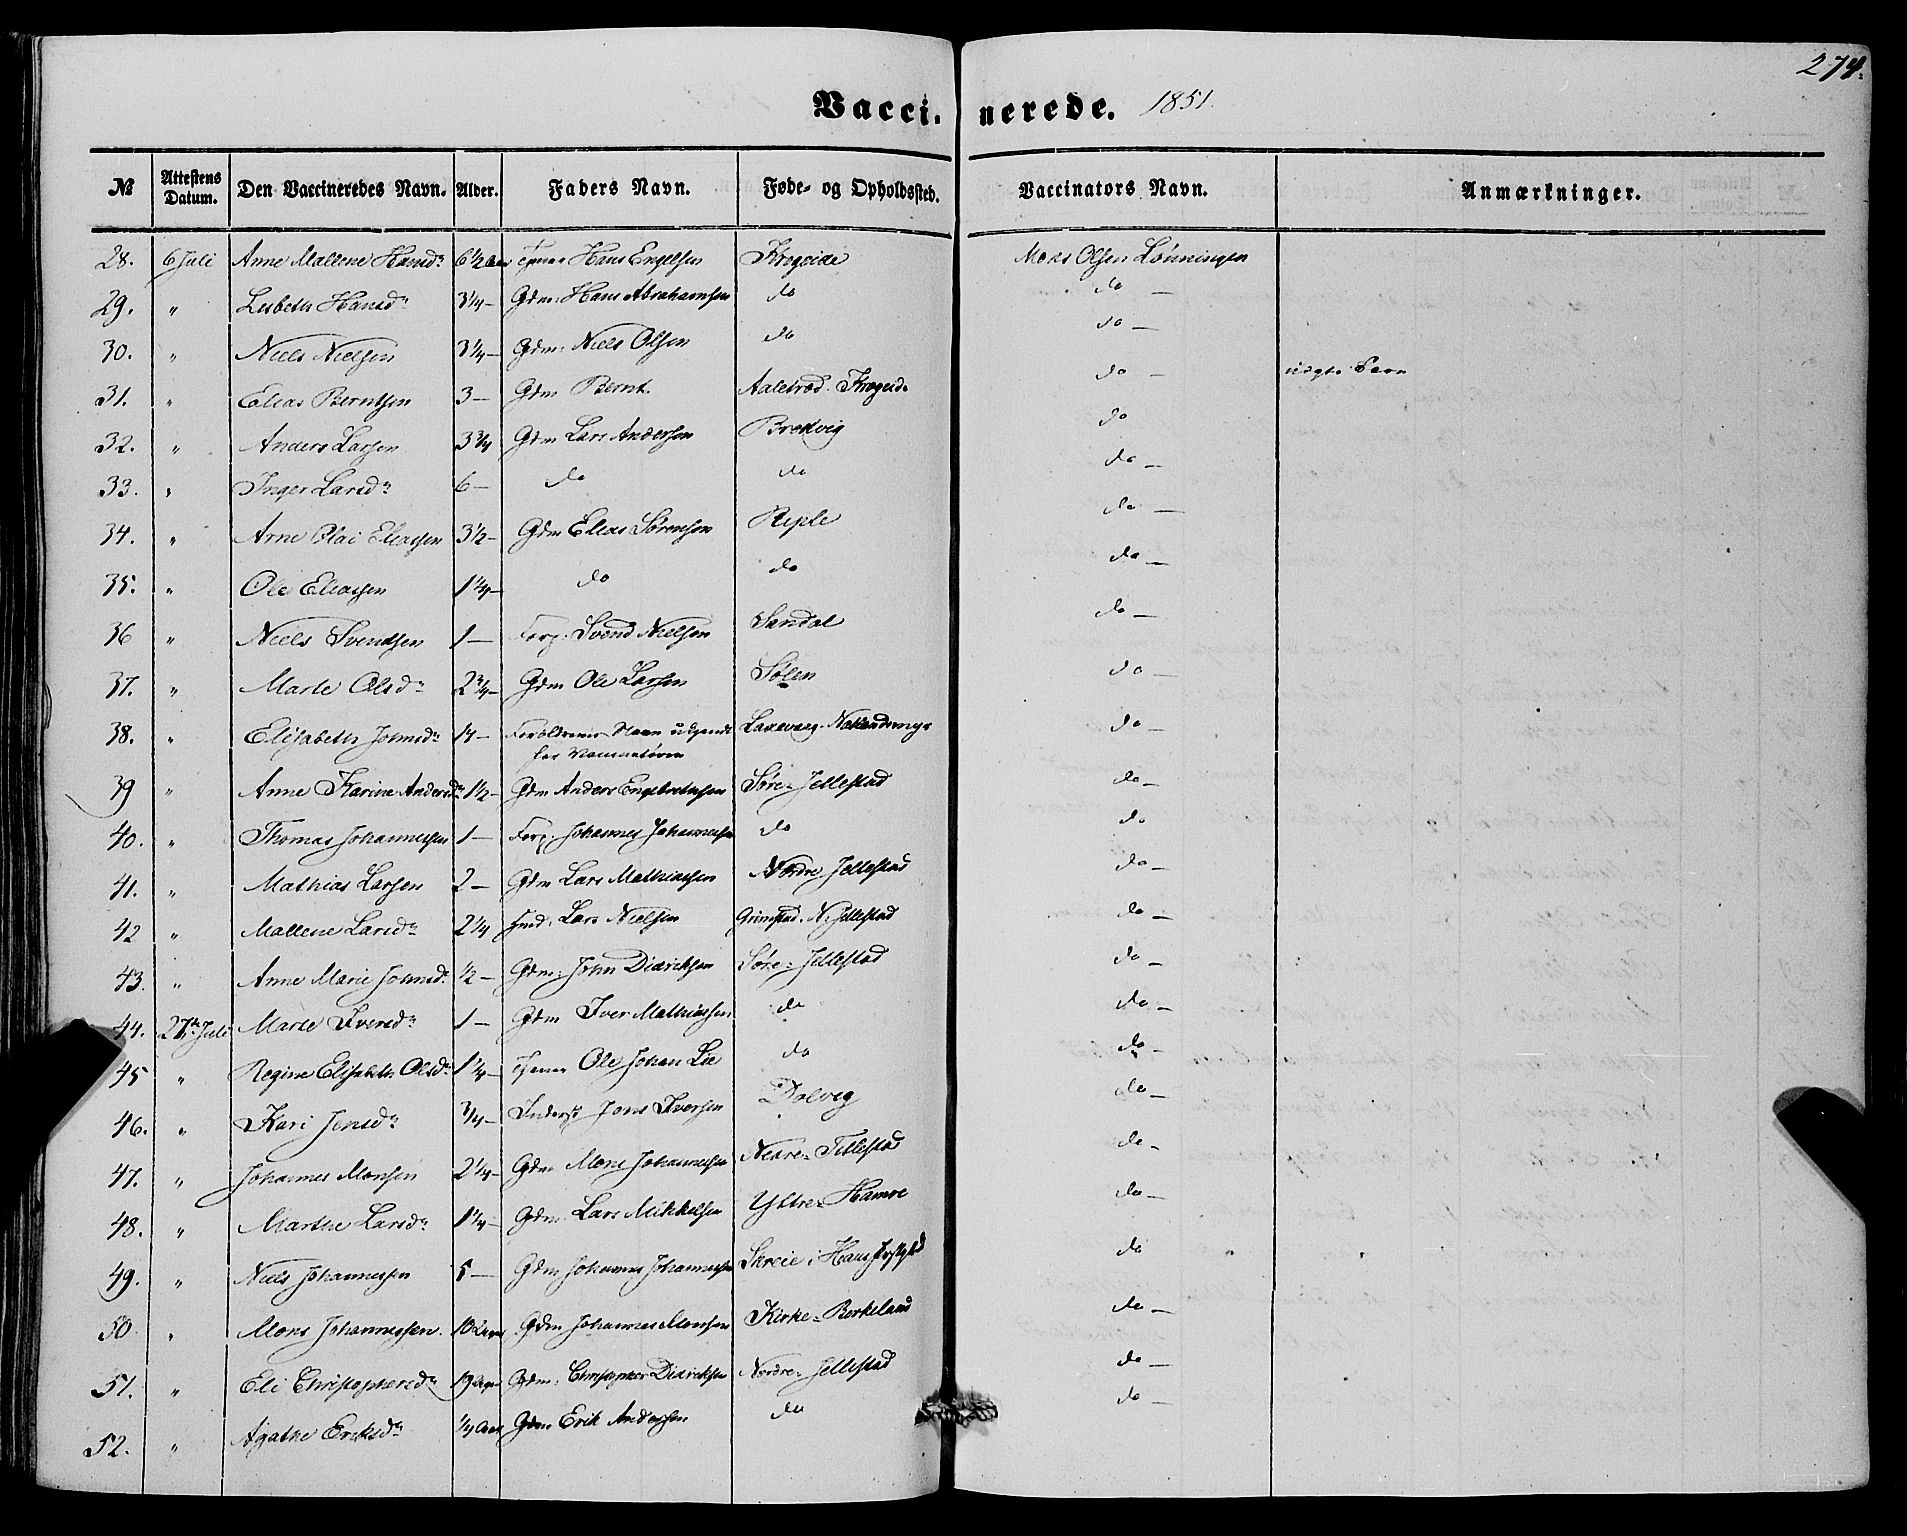 274.
Vacci- nerede. 1851.
№ Attestens Datum. Den Vaccineredes Navn. Alder. Faders Navn. Føde- og Opholdssted. Vaccinators Navn. Anmærkninger.
28. 6 Juli Anne Mallene Hansd. 6 1/2 Aar Hans Engelsen Krogeide Mons Olsen Lønningen
29. " Lisbeth Hansd. 3 1/4 – Gdm. Hans Abrahamsen do do –
30. " Niels Nielsen 3 1/4 – Gdm. Niels Olsen do do –
31. " Elias Berntsen 3 – Gdm Bernt Krogeide do – uægte Barn
32. " Anders Larsen 3 3/4 Gdm Lars Andersen Bredvig do
33. " Inger Larsd. 6 – do do do –
34. " Arne Olai Eliassen 3 1/2 – Gdm Elias Sørensen Reple do –
35. " Ole Eliassen 1 1/4 – do do do –
36 " Niels Svendsen 1 – Svend Nielsen Sandal do –
37. " Marte Olsd. 2 3/4 – Gdm Ole Larsen Sølen do –
38. " Elisabeth Johnsd. 14 – Forældrenes Navn ukjendt for Vaccinatøren Laxevaag do –
39 " Anne Karine Andersd. 1 1/2 – Gdm Anders Engebretsen Søre Jellestad do –
40. " Thomas Johannessen 1 – Johannes Johannessen do do
41. " Mathias Larsen 2 – Gdm Lars Mathiassen Nordre Jellestad do –
42 " Mallene Larsd. 2 1/4 Lars Nielsen Grimstad. N. Jellestad do –
43. " Anne Marie Johnsd. 1/2 – Gdm. John Didriksen Søre Jellestad do –
44. 27de Juli Marte Iversd. 1 – Gdm Iver Mathiassen do do –
45 " Regine Elisabeth Olsd. 1 1/4 – Ole Johan Lie do do –
46. " Kari Jensd. 3/4 – Jens Iversen Dolvig do –
47. " Johannes Monsen 2 1/4 – Gdm Mons Johannessen Nedre Titlestad do –
48. " Marthe Larsd. 1 1/4 – Gdm. Lars Mikkelsen Yttre Hamre do –
49. " Niels Johannessen 5 – Gdm Johannes Johannessen Skreie i Haus Præstegjeld do
50 " Mons Johannessen. Gdm Johannes Monsen Kirke-Berkeland do –
51. " Eli Christophersd. Gdm. Christopher Didriksen Nordre Jellestad do –
52. " Agathe Eriksd. 1/4 Aar Gdm Erik Andersen do do –